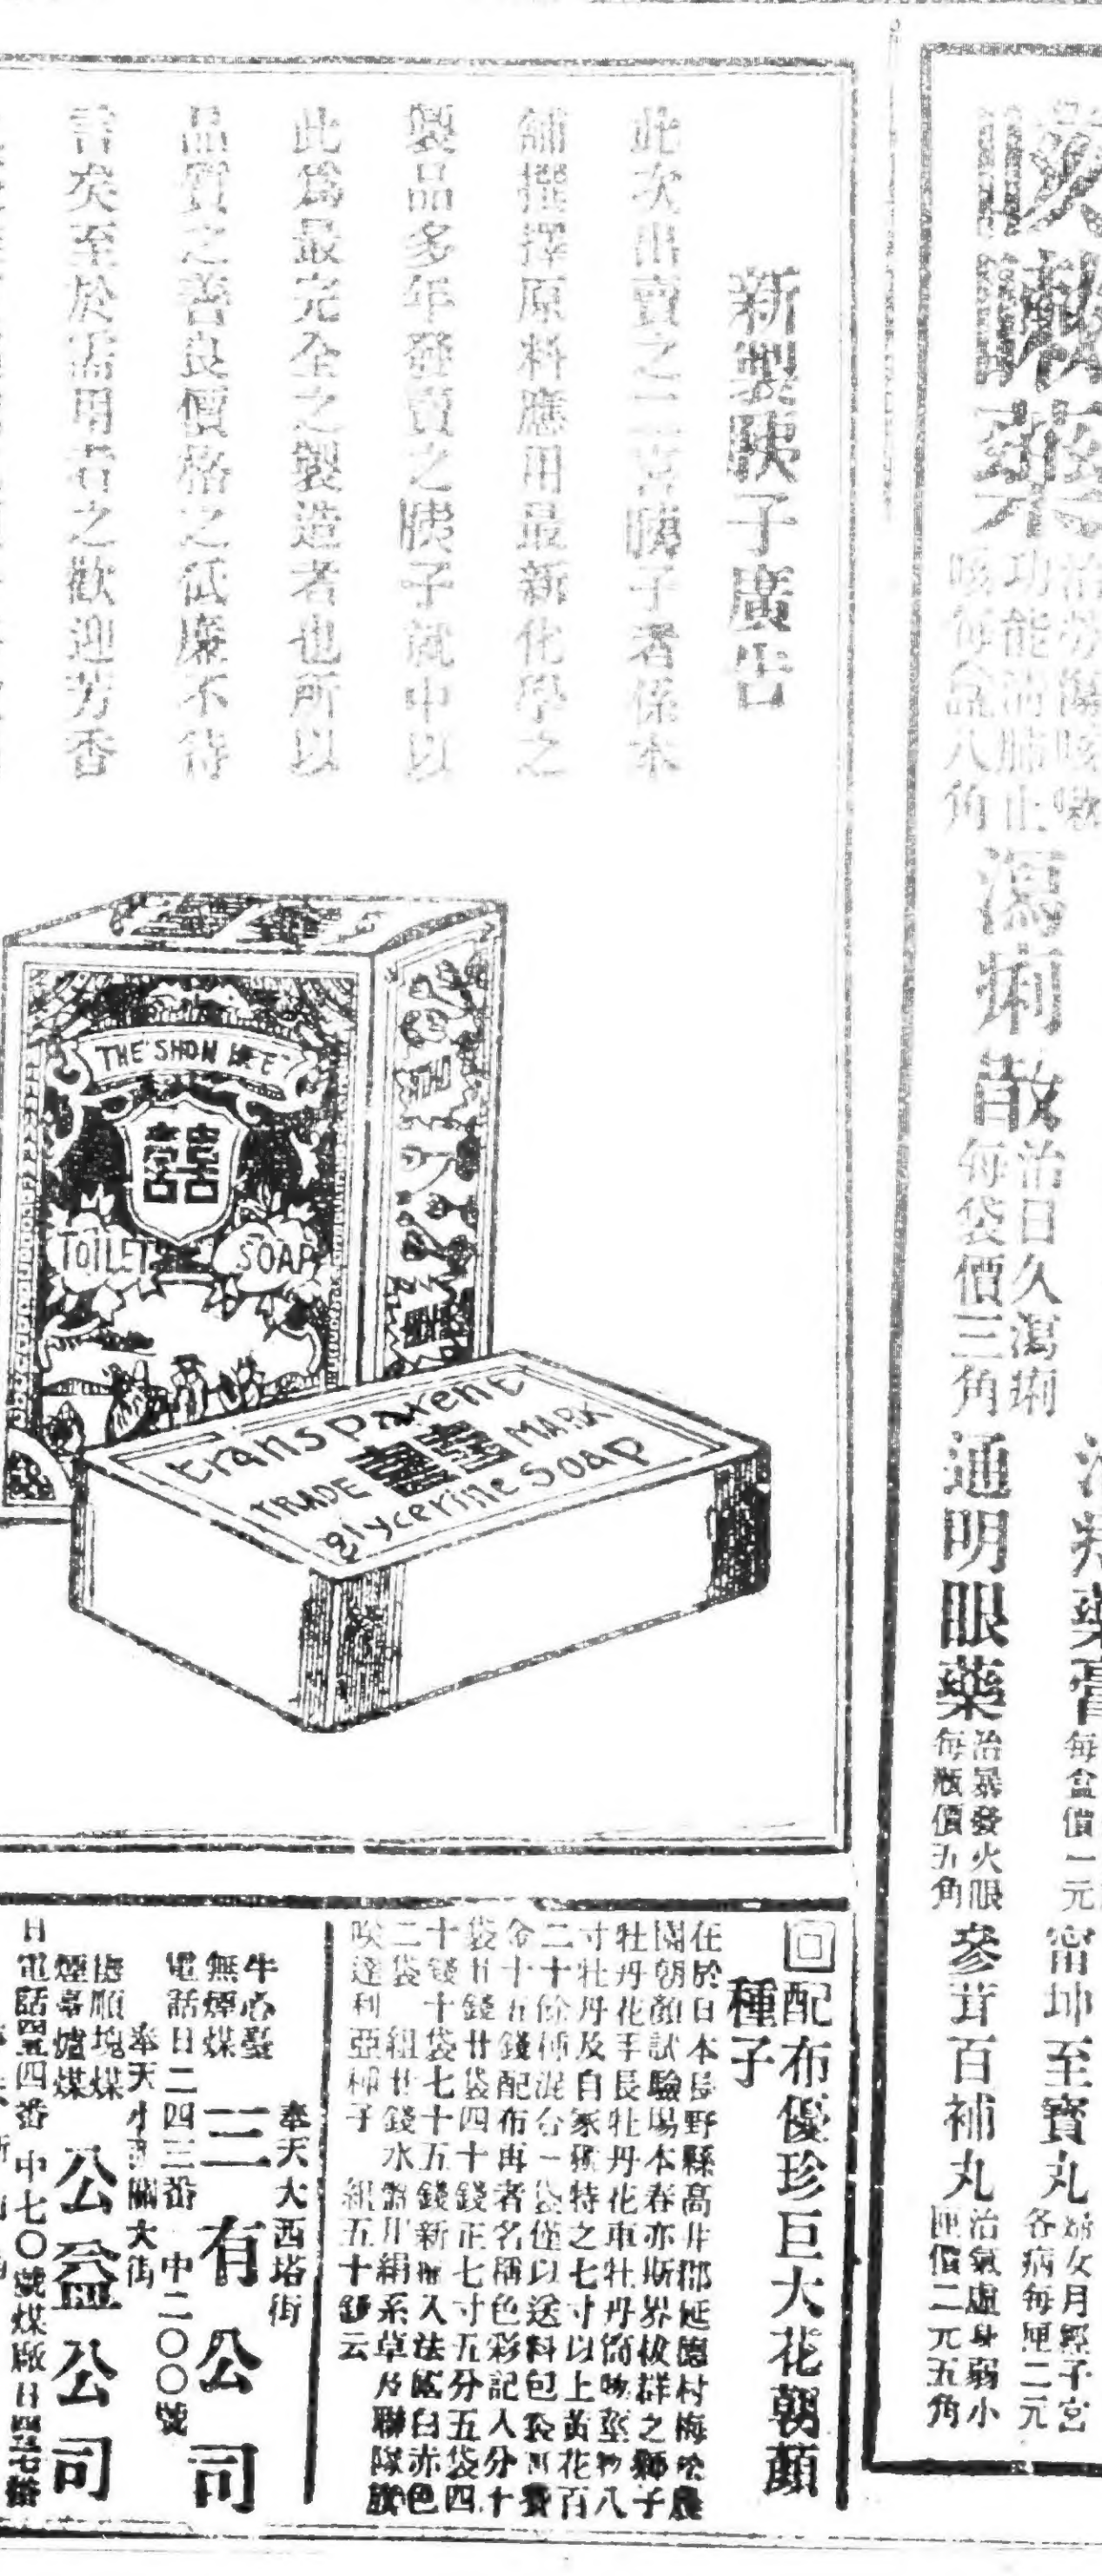 咳嗽藥
治勞傷咳嗽
功能清肺止
咳每盒八角
瀉痢散
治日久瀉痢
每袋價三角
每盒價一元
通明眼藥
治暴發火眼
每瓶價五角
富坤至寶丸
婦女月經子宮
各病每匣二元
參茸百補丸
治氣虛身弱小
匣價二元五角
新製胰子廣告
此次出賣之二喜胰子者係本
舖撰擇原料應用最新化學之
製品多年發賣之胰子就中以
此爲最完全之製造者也所以
品質之善良價格之低廉不待
言矣至於需用者之歡迎芳香
THE SHON LEE
囍
TOILET SOAP
transparent
TRADE 囍 MARK
glycerine soap
回配布優珍巨大花朝顏
種子
在於日本長野縣高井郡延德村梅
園朝顏試驗場本春亦斯界拔群之獅子
牡丹花手長牡丹花車牡丹
寸牡丹及自家獨特之七寸以上黃花百
二十餘種混合一袋僅以送料包
金十五錢配布再者名稱色彩記入分十
袋廿錢廿袋四十錢正七寸五分五袋四
十錢十袋七十五錢新輸入法國白赤色
二袋一組廿錢水盤用絹糸草及聯隊旗
咲達利亞種子一組五十錢云
奉天大西塔街
牛心臺
無煙煤
三有公司
電話日二四三番 中二〇〇號
奉天小西關大街
撫順塊煤
煙臺爐煤
公益公司